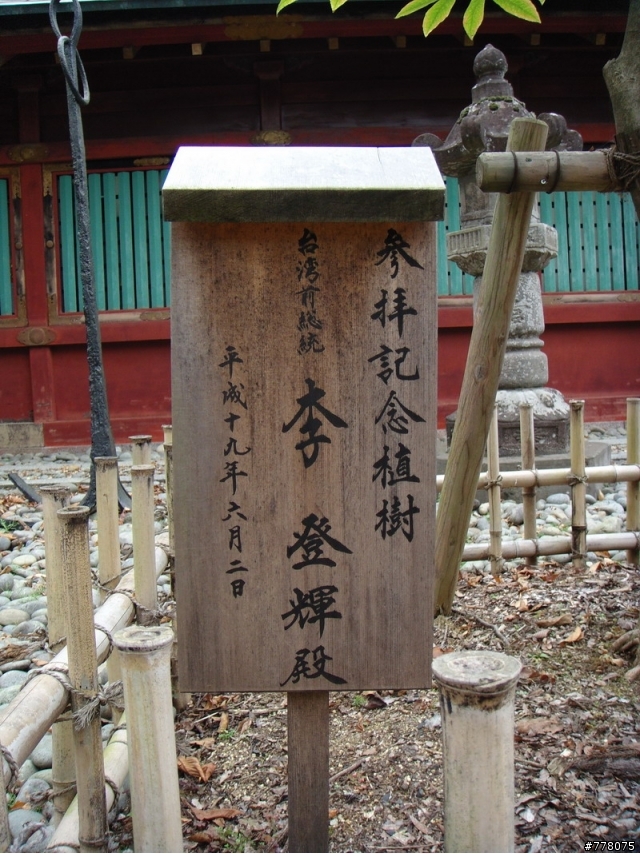 参拝記念植樹
台湾前総統 李登輝殿
平成十九年六月二日
#778075